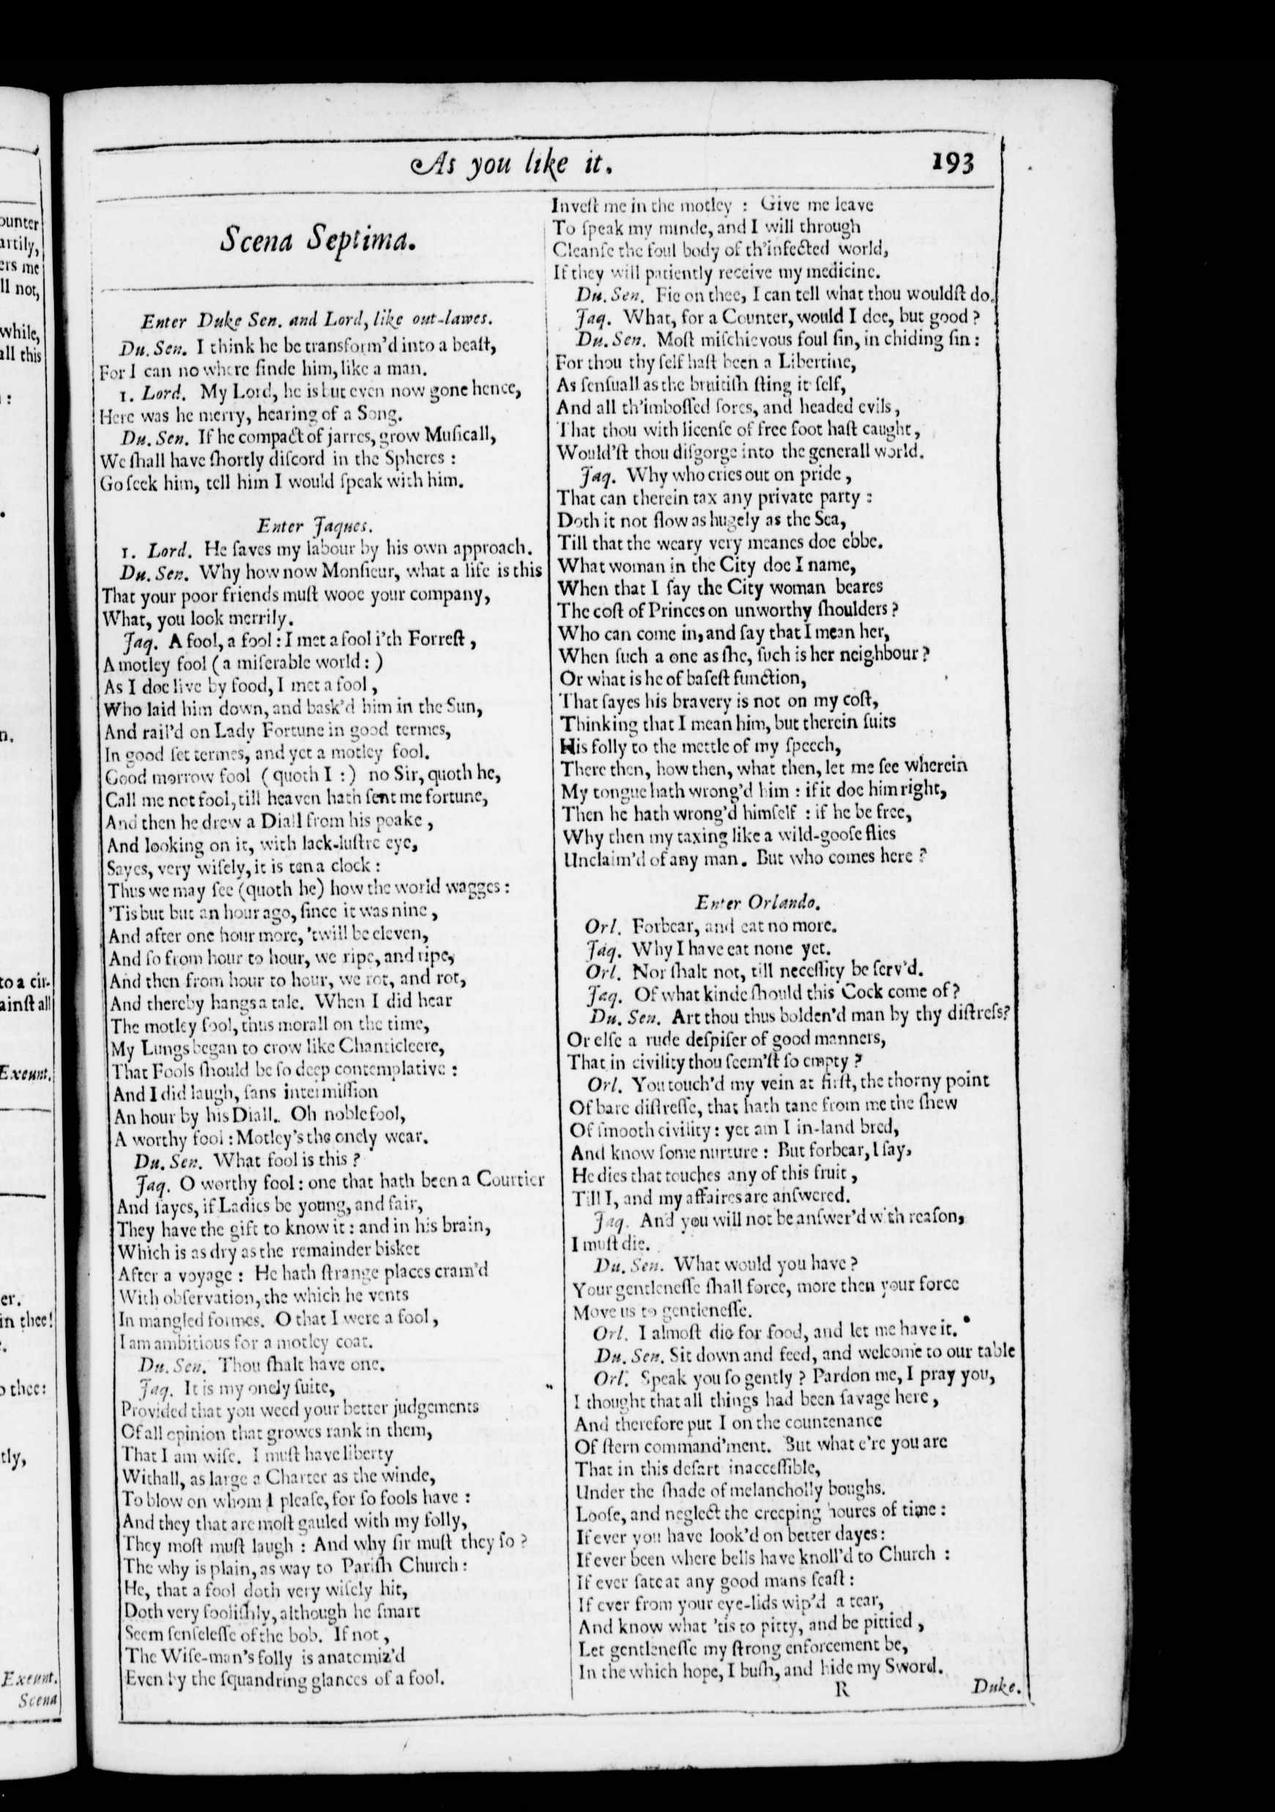 ounter
artily,
ers me
ll not,
while,
all this
:
n.
to a cir-
ainſt all
Exeunt.
er.
in thee!
o thee:
tly,
Exeunt.
Scena
As you like it.
193
Scena Septima.
Enter Duke Sen. and Lord, like out-lawes.
Du. Sen. I think he be transform'd into a beaſt,
For I can no where finde him, like a man.
1. Lord. My Lord, he is but even now gone hence,
Here was he merry, hearing of a Song.
Du. Sen. If he compact of jarres, grow Muſicall,
We ſhall have ſhortly diſcord in the Spheres :
Go ſeek him, tell him I would ſpeak with him.
Enter Jaques.
1. Lord. He ſaves my labour by his own approach.
Du. Sen. Why how now Monſieur, what a life is this
That your poor friends muſt wooe your company,
What, you look merrily.
Jaq. A fool, a fool : I met a fool i'th Forreſt,
A motley fool (a miſerable world : )
As I doe live by food, I met a fool,
Who laid him down, and bask'd him in the Sun,
And rail'd on Lady Fortune in good termes,
In good ſet termes, and yet a motley fool.
Good morrow fool (quoth I :) no Sir, quoth he,
Call me not fool, till heaven hath ſent me fortune,
And then he drew a Diall from his poake,
And looking on it, with lack-luſtre eye,
Sayes, very wiſely, it is ten a clock :
Thus we may ſee (quoth he) how the world wagges :
'Tis but but an hour ago, ſince it was nine,
And after one hour more, 'twill be eleven,
And ſo from hour to hour, we ripe, and ripe,
And then from hour to hour, we rot, and rot,
And thereby hangs a tale. When I did hear
The motley fool, thus morall on the time,
My Lungs began to crow like Chanticleere,
That Fools ſhould be ſo deep contemplative :
And I did laugh, ſans intermiſſion
An hour by his Diall. Oh noble fool,
A worthy fool : Motley's the onely wear.
Du. Sen. What fool is this ?
Jaq. O worthy fool : one that hath been a Courtier
And ſayes, if Ladies be young, and fair,
They have the gift to know it : and in his brain,
Which is as dry as the remainder bisket
After a voyage : He hath ſtrange places cram'd
With obſervation, the which he vents
In mangled formes. O that I were a fool,
I am ambitious for a motley coat.
Du. Sen. Thou ſhalt have one.
Jaq. It is my onely ſuite,
Provided that you weed your better judgements
Of all opinion that growes rank in them,
That I am wiſe. I muſt have liberty
Withall, as large a Charter as the winde,
To blow on whom I pleaſe, for ſo fools have :
And they that are moſt gauled with my folly,
They moſt muſt laugh : And why ſir muſt they ſo ?
The why is plain, as way to Pariſh Church :
He, that a fool doth very wiſely hit,
Doth very fooliſhly, although he ſmart
Seem ſenſeleſſe of the bob. If not,
The Wiſe-man's folly is anatomiz'd
Even by the ſquandring glances of a fool.
Inveſt me in the motley : Give me leave
To ſpeak my minde, and I will through
Cleanſe the foul body of th'infected world,
If they will patiently receive my medicine.
Du. Sen. Fie on thee, I can tell what thou wouldſt do.
Jaq. What, for a Counter, would I doe, but good ?
Du. Sen. Moſt miſchievous foul ſin, in chiding ſin :
For thou thy ſelf haſt been a Libertine,
As ſenſuall as the bruitiſh ſting it ſelf,
And all th'imboſſed ſores, and headed evils,
That thou with licenſe of free foot haſt caught,
Would'ſt thou diſgorge into the generall world.
Jaq. Why who cries out on pride,
That can therein tax any private party :
Doth it not flow as hugely as the Sea,
Till that the weary very meanes doe ebbe.
What woman in the City doe I name,
When that I ſay the City woman beares
The coſt of Princes on unworthy ſhoulders ?
Who can come in, and ſay that I mean her,
When ſuch a one as ſhe, ſuch is her neighbour ?
Or what is he of baſeſt function,
That ſayes his bravery is not on my coſt,
Thinking that I mean him, but therein ſuits
His folly to the mettle of my ſpeech,
There then, how then, what then, let me ſee wherein
My tongue hath wrong'd him : if it doe him right,
Then he hath wrong'd himſelf : if he be free,
Why then my taxing like a wild-gooſe flies
Unclaim'd of any man. But who comes here ?
Enter Orlando.
Orl. Forbear, and eat no more.
Jaq. Why I have eat none yet.
Orl. Nor ſhalt not, till neceſſity be ſerv'd.
Jaq. Of what kinde ſhould this Cock come of ?
Du. Sen. Art thou thus bolden'd man by thy diſtreſs?
Or elſe a rude deſpiſer of good manners,
That in civility thou ſeem'ſt ſo empty ?
Orl. You touch'd my vein at firſt, the thorny point
Of bare diſtreſſe, that hath tane from me the ſhew
Of ſmooth civility : yet am I in-land bred,
And know ſome nurture : But forbear, I ſay,
He dies that touches any of this fruit,
Till I, and my affaires are anſwered.
Jaq. And you will not be anſwer'd with reaſon,
I muſt die.
Du. Sen. What would you have ?
Your gentleneſſe ſhall force, more then your force
Move us to gentleneſſe.
Orl. I almoſt die for food, and let me have it.
Du. Sen. Sit down and feed, and welcome to our table
Orl. Speak you ſo gently ? Pardon me, I pray you,
I thought that all things had been ſavage here,
And therefore put I on the countenance
Of ſtern command'ment. But what e're you are
That in this deſart inacceſſible,
Under the ſhade of melancholly boughs.
Looſe, and neglect the creeping houres of time :
If ever you have look'd on better dayes :
If ever been where bells have knoll'd to Church :
If ever ſate at any good mans feaſt :
If ever from your eye-lids wip'd a tear,
And know what 'tis to pitty, and be pittied,
Let gentleneſſe my ſtrong enforcement be,
In the which hope, I buſh, and hide my Sword.
R
Duke.